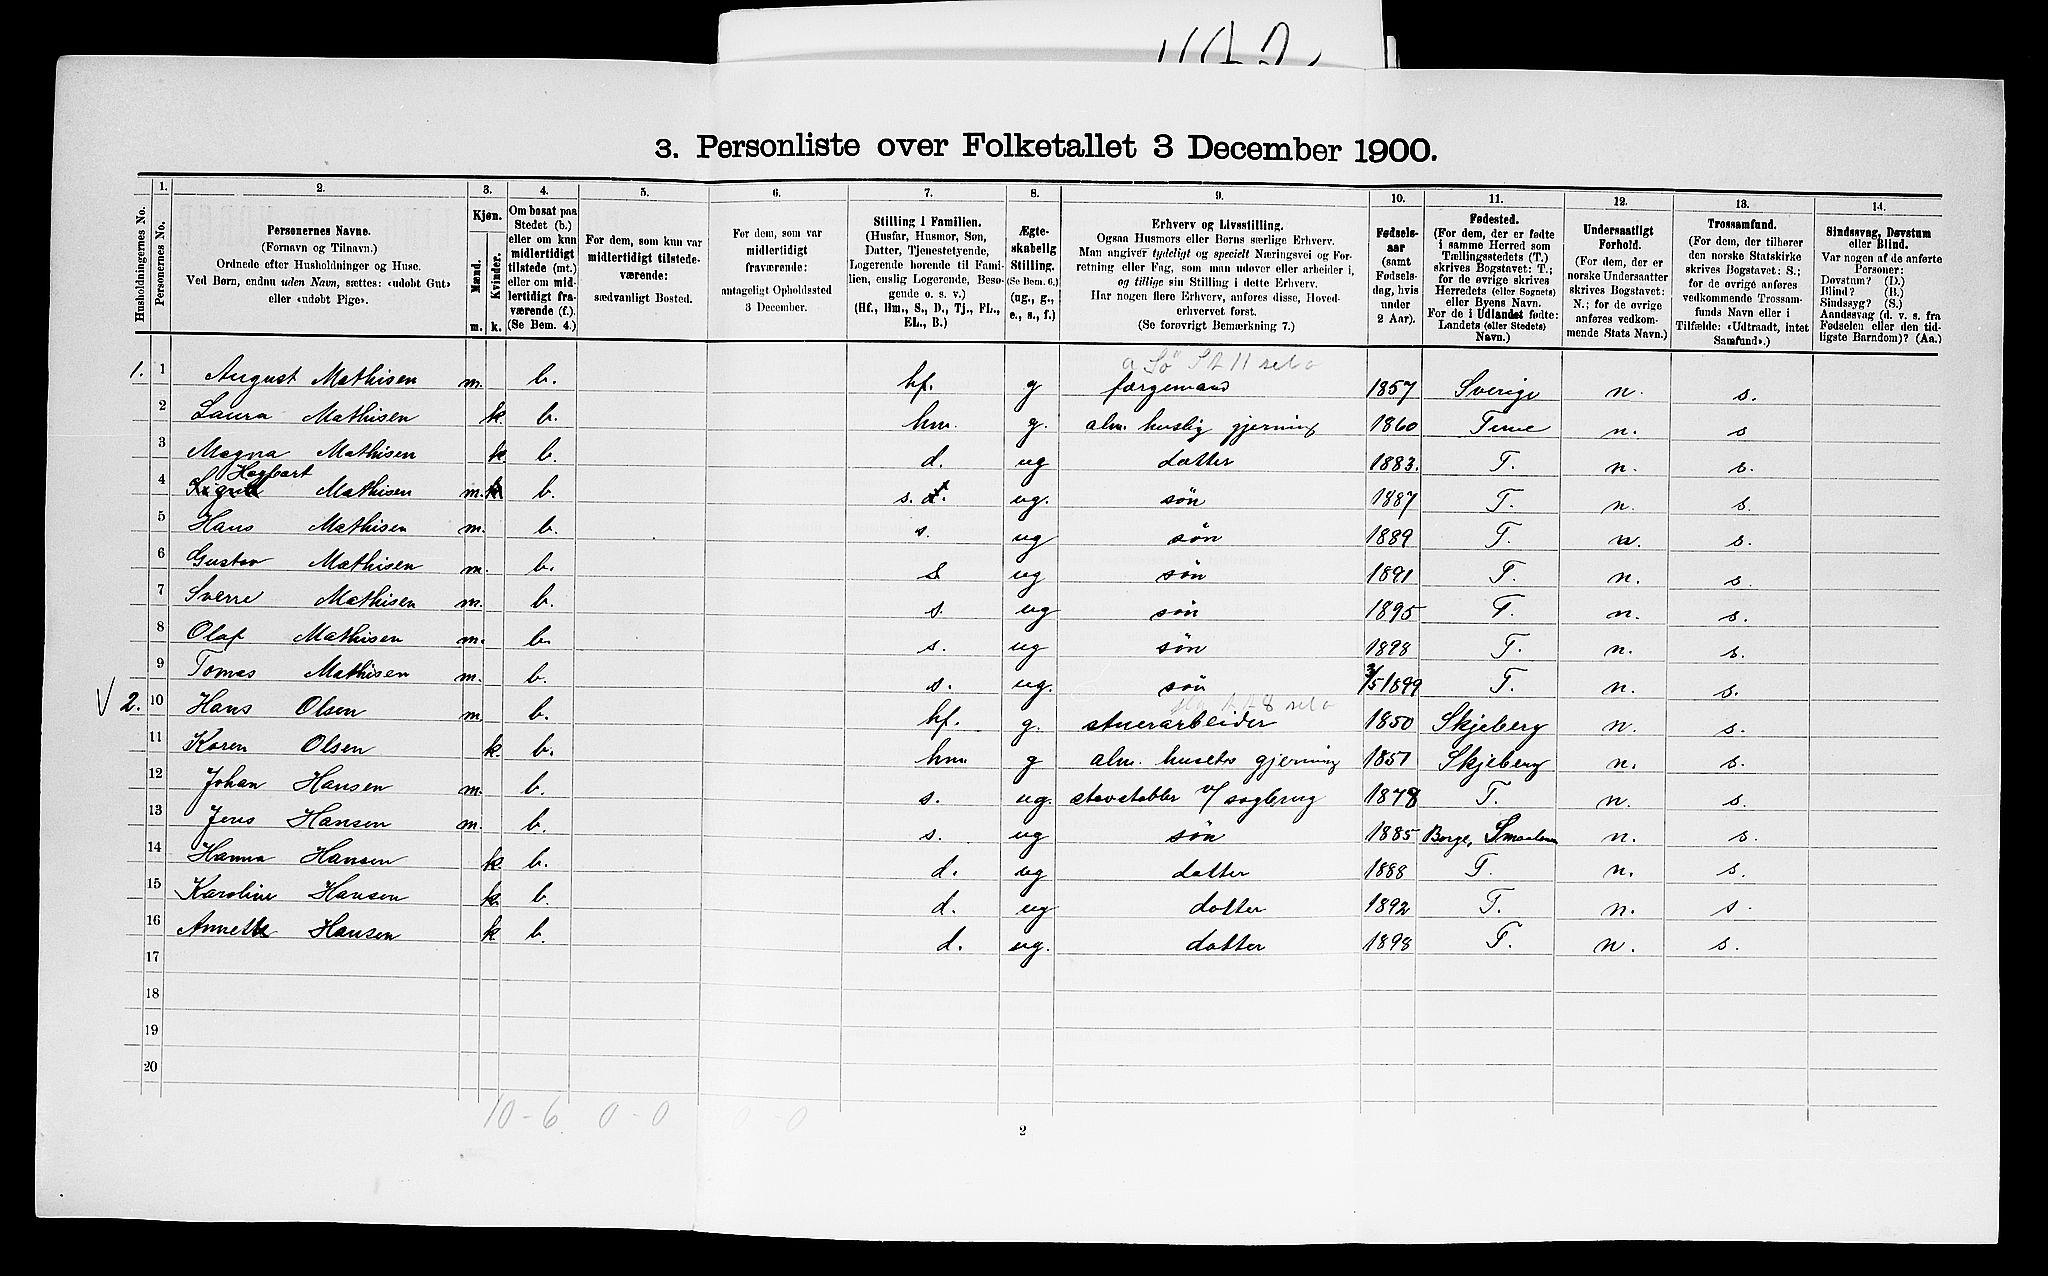 3. Personliste over Folketallet 3 December 1900.
1. 2. 3. 4. 5. 6. 7. 8. 9. 10. 11. 12. 13. 14.
Husholdningernes No.
Personernes No.
Personernes Navne.
(Fornavn og Tilnavn.)
Ordnede efter Husholdninger og Huse.
Ved Børn, endnu uden Navn, sættes: «udøbt Gut»
eller «udøbt Pige».
Kjøn.
Mænd.
Kvinder.
m. k.
Om bosat paa
Stedet (b.)
eller om kun
midlertidigt
tilstede (mt.)
eller om mid-
lertidigt fra-
værende (f.).
(Se Bem. 4.)
For dem, som kun var
midlertidigt tilstede-
værende:
sædvanligt Bosted.
For dem, som var
midlertidigt
fraværende:
antageligt Opholdssted
3 December.
Stilling i Familien.
(Husfar, Husmor, Søn,
Datter, Tjenestetyende,
Logerende hørende til Fami-
lien, enslig Logerende, Besø-
gende o. s. v.)
(Hf., Hm., S., D., Tj., FL.,
EL., B.)
Ægte-
skabelig
Stilling.
(Se Bem. 6.)
(ug., g.,
e., s., f.)
Erhverv og Livsstilling.
Ogsaa Husmors eller Børns særlige Erhverv.
Man angiver tydeligt og specielt Næringsvei og For-
retning eller Fag, som man udøver eller arbeider i,
og tillige sin Stilling i dette Erhverv.
Har nogen flere Erhverv, anføres disse, Hoved-
erhvervet først.
(Se forøvrigt Bemærkning 7.)
Fødsels-
aar
(samt
Fødsels-
dag, hvis
under
2 Aar).
Fødested.
(For dem, der er fødte
i samme Herred som
Tællingsstedets (T.)
skrives Bogstavet: T.;
for de øvrige skrives
Herredets (eller Sognets)
eller Byens Navn.
For de i Udlandet fødte:
Landets (eller Stedets)
Navn.)
Undersaatligt
Forhold.
(For dem, der er
norske Undersaatter
skrives Bogstavet:
N.; for de øvrige
anføres vedkom-
mende Stats Navn.)
Trossamfund.
(For dem, der tilhører
den norske Statskirke
skrives Bogstavet: S.;
for de øvrige anføres
vedkommende Trossam-
funds Navn eller i
Tilfælde: «Udtraadt, intet
Samfund».)
Sindssvag, Døvstum
eller Blind.
Var nogen af de anførte
Personer:
Døvstum? (D.)
Blind? (B.)
Sindssyg? (S.)
Aandssvag (d. v. s. fra
Fødselen eller den tid-
ligste Barndom)? (Aa.)
1. 1 August Mathisen m. b. hf. g færgemand 1857 Sverige n. s.
2 Laura Mathisen k b. hm. g. alm. huslig gjerning 1860 Tune n. s
3 Magna Mathisen k b. d. ug datter 1883. T. n. s.
4 Hagbart Mathisen m. b. s. ug. søn 1887 T. n. s.
5 Hans Mathisen m. b. s. ug søn 1889 T. n. s.
6 Gustav Mathisen m. b. s ug søn 1891 T. n. s.
7 Sverre Mathisen m. b. s. ug søn 1895 T. n. s.
8 Olaf Mathisen m. b. s. ug søn 1898 T. n. s.
9 Tomas Mathisen m. b. s. ug. søn 3/5 1899 T. n. s.
V 2. 10 Hans Olsen m b. hf. g. stuerarbeider 1850 Skjeberg n. s.
11 Karen Olsen k b. hm g alm. husets gjerning 1851 Skjeberg n. s.
12 Johan Hansen m. b. s. ug. stavstabler v/ sagbrug 1878 T. n. s.
13 Jens Hansen m. b. s. ug søn 1885 Borge, Smaalene n. s.
14 Hanna Hansen k b. d. ug datter 1888 T. n. s.
15 Karoline Hansen k. b. d. ug datter 1892 T. n. s
16 Annette Hansen k b. d. ug. datter 1898 T. n. s.
17
18
19
20
10 - 6 0 - 0 0 - 0
2